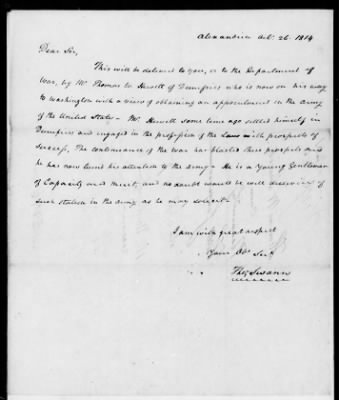 Alexandria Oct. 26. 1814
Dear Sir,
This will be delivered to you, or to the Department of
War, by Mr Thomas W Hewitt of Dumfries who is now on his way
to Washington with a view of obtaining an appointment in the army
of the United States - Mr. Hewitt some time ago settled himself in
Dumfries and engaged in the profession of the Law with prospects of
success. The continuance of the war has blasted those prospects and
he has now turned his attention to the army - He is a young Gentleman
of Capacity and merit, and no doubt would be well deserving of
such station in the army as he may solicit -
I am with great respect
Your Obt Servt
Thos Swann